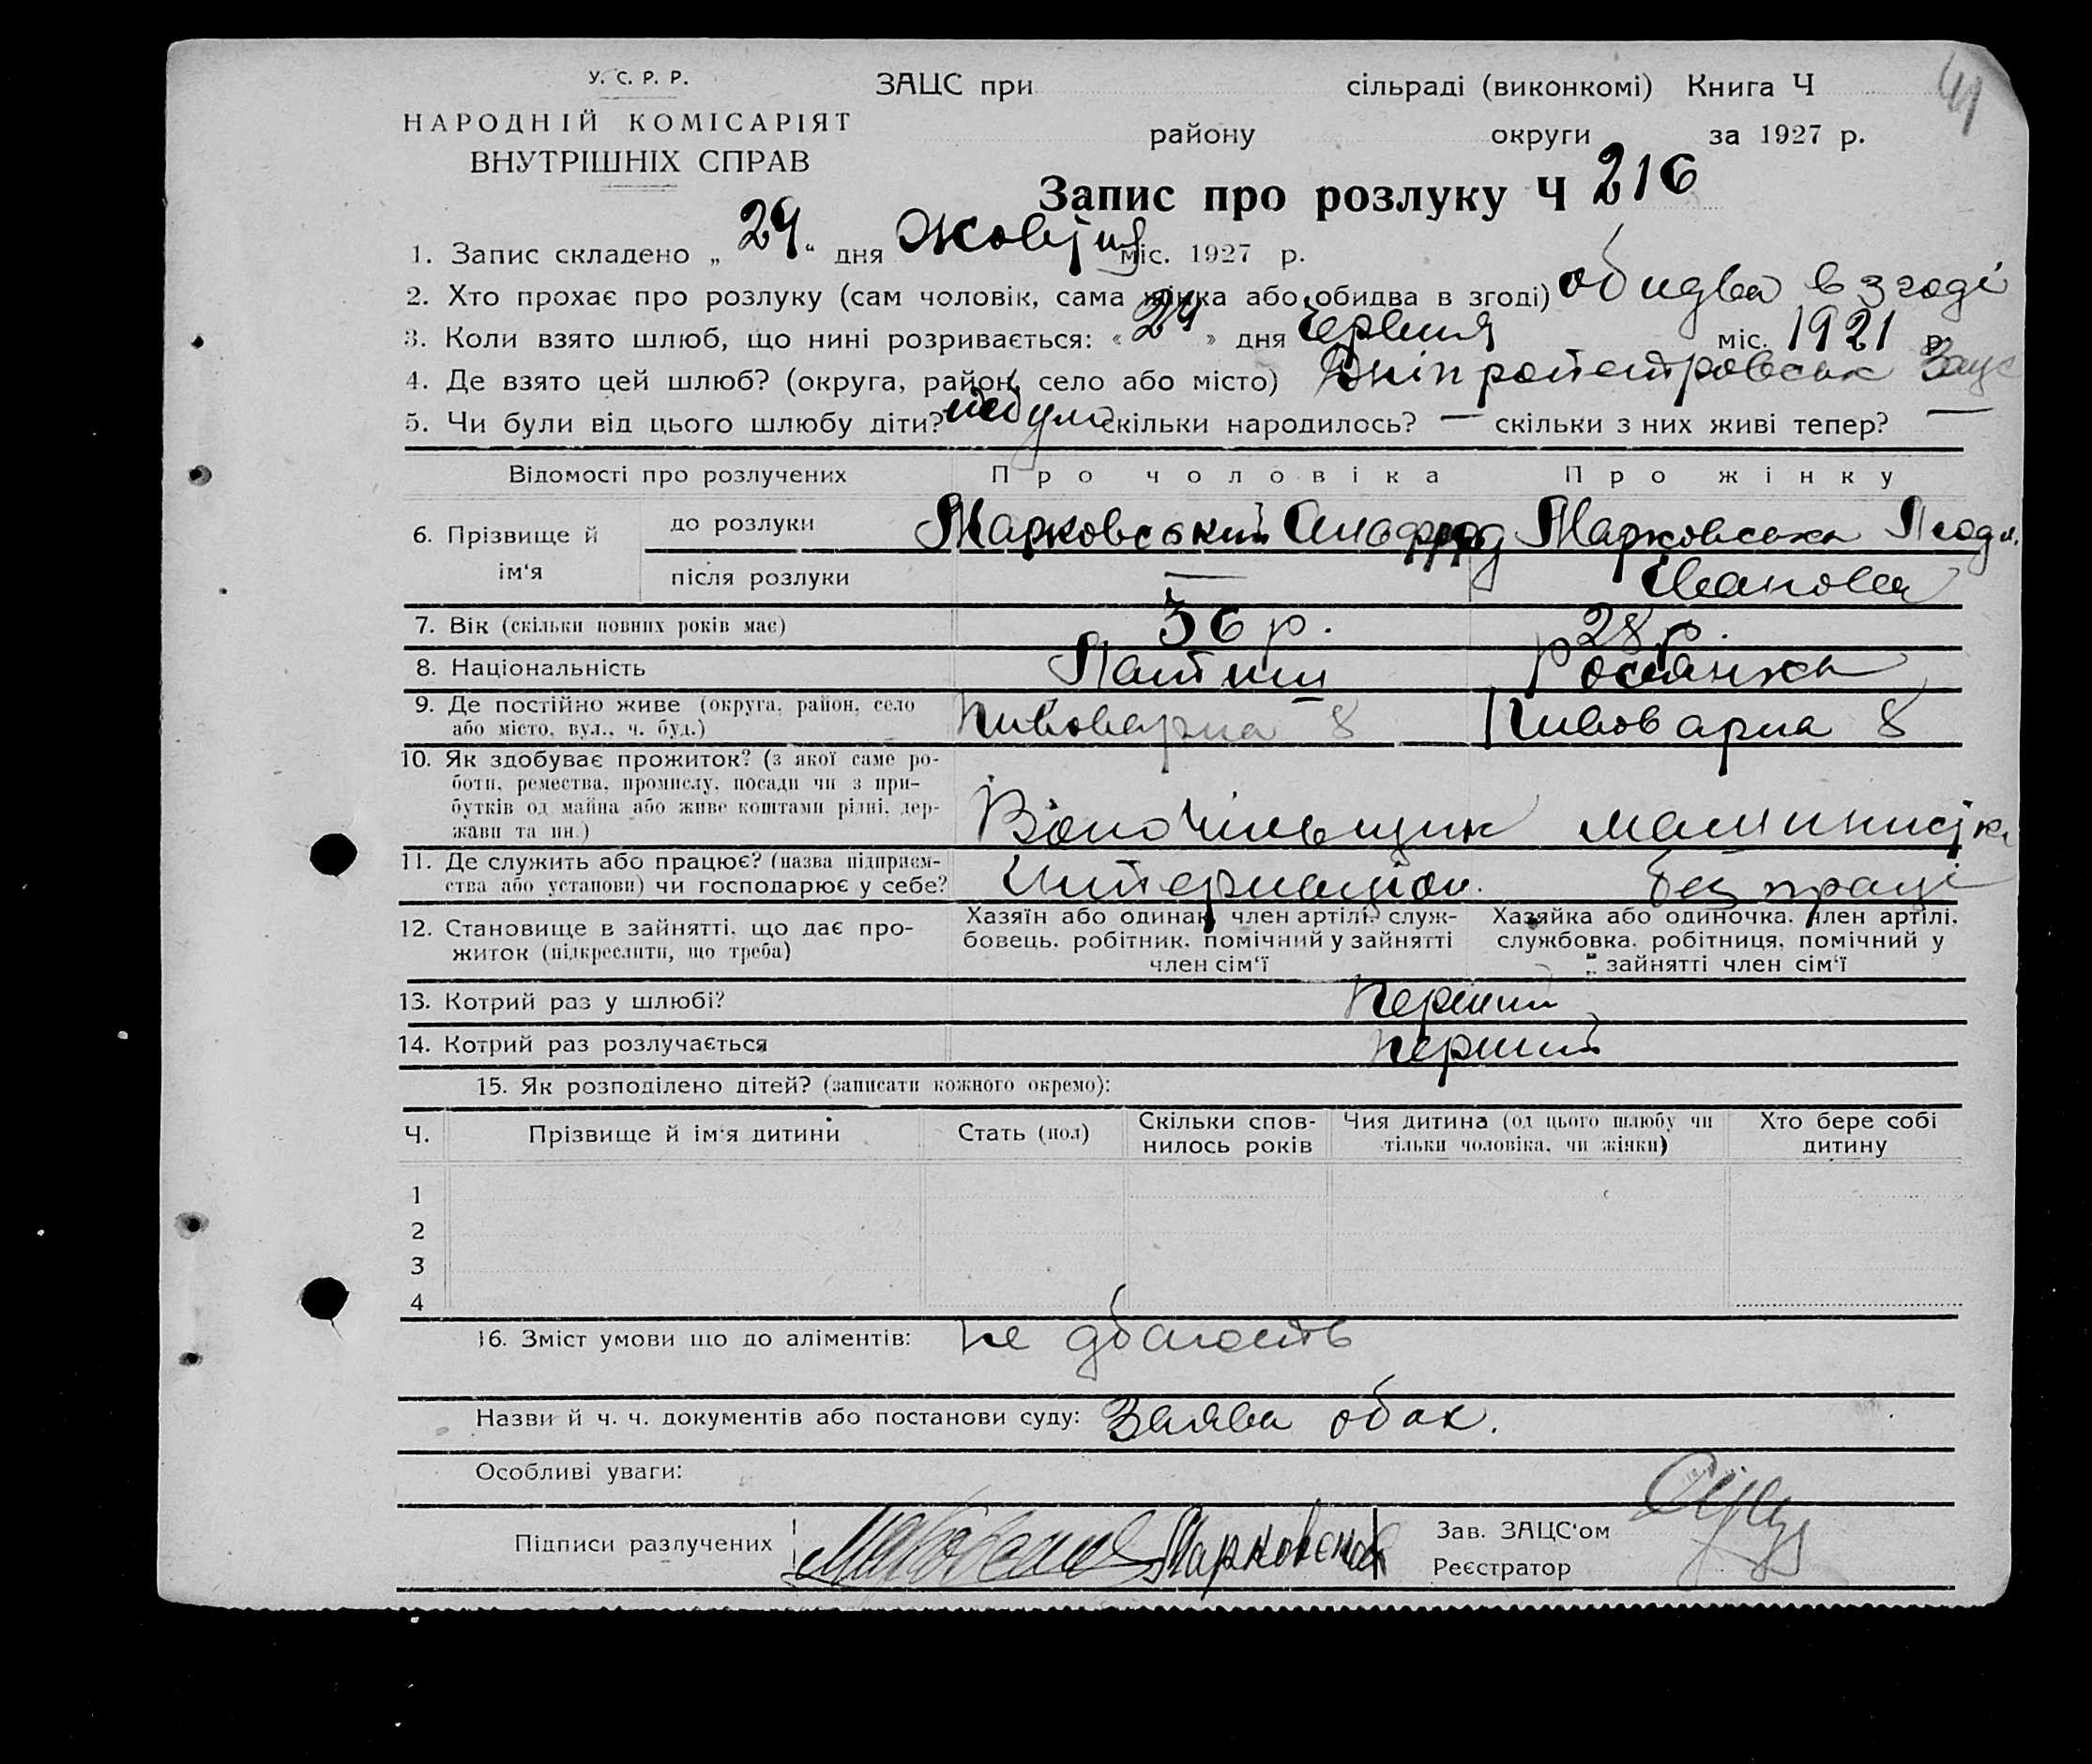 У. С. Р. Р.
НАРОДНІЙ КОМІСАРІЯТ
ВНУТРІШНІХ СПРАВ
ЗАЦС при сільраді (виконкомі) Книга Ч 41
району округи за 1927 р.
Запис про розлуку Ч 216
1. Запис складено „ 29 “ дня Жовтня міс. 1927 р.
2. Хто прохає про розлуку (сам чоловік, сама жінка або обидва в згоді) обидва в згоді
3. Коли взято шлюб, що нині розривається: « 24 » дня Червня міс. 1921 р.
4. Де взято цей шлюб? (округа, район, село або місто) Дніпропетровськ Зацс
5. Чи були від цього шлюбу діти? не було скільки народилось? — скільки з них живі тепер? —
Відомості про розлучених Про чоловіка Про жінку
6. Прізвище й ім‘я до розлуки Марковський Марковська
після розлуки — Іванова
7. Вік (скільки повних років має) 36 р. 28 р.
8. Національність Латиш Росіянка
9. Де постійно живе (округа, район, село Пивоварна 8 Пивоварна 8
або місто, вул., ч. буд.)
10. Як здобуває прожиток? (з якої саме ро-
боти, ремества, промислу, посади чи з при-
бутків од майна або живе коштами рідні, дер-
жави та ин.) машиністка
11. Де служить або працює? (назва підприєм- Интернаціон. без праці
ства або установи) чи господарює у себе?
12. Становище в зайнятті, що дає про-
житок (підкреслити, що треба)
Хазяїн або одинак, член артілі, служ-
бовець, робітник, помічний у зайнятті
член сім‘ї
Хазяйка або одиночка, член артілі,
службовка, робітниця, помічний у
зайнятті член сім‘ї
13. Котрий раз у шлюбі? перший
14. Котрий раз розлучається перший
15. Як розподілено дітей? (записати кожного окремо):
Ч. Прізвище й ім‘я дитини Стать (пол) Скільки спов-
нилось років Чия дитина (од цього шлюбу чи
тільки чоловіка, чи жінки) Хто бере собі
дитину
1
2
3
4
16. Зміст умови що до аліментів: не дбають
Назви й ч. ч. документів або постанови суду: Заява обох.
Особливі уваги:
Підписи разлучених Марковська Зав. ЗАЦС‘ом
Реєстратор